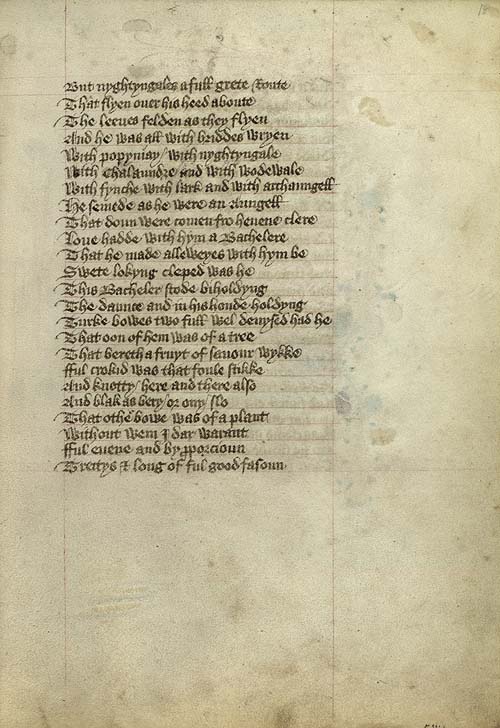 But nyghtyngales a full grete Route
That flyen ouer his heed aboute
The leeues felden as they flyen
And he was all with briddes wryen
With popyniay / with nyghtyngale
With Chalaundre and with wodewale
With fynche with lark and with archaungell
He semede as he were an Aungell
That doun were comen fro heuene clere
Loue hadde with hym a Bachelere
That he made alleweyes with hym be
Swete lokyng cleped was he
This Bacheler stode biholdyng
The daunce and in his honde holdyng
Turke bowes two full wel deuysed had he
That oon of hem was of a tree
That bereth a fruyt of sauour wykke
Ful crokid was that foule stikke
And knotty here and there also
And blak as bery / or ony slo
That othe bowe was of a plant
Without wem I dar warant
Ful euene and by proporcioun
Treitys & long of ful good fasoun